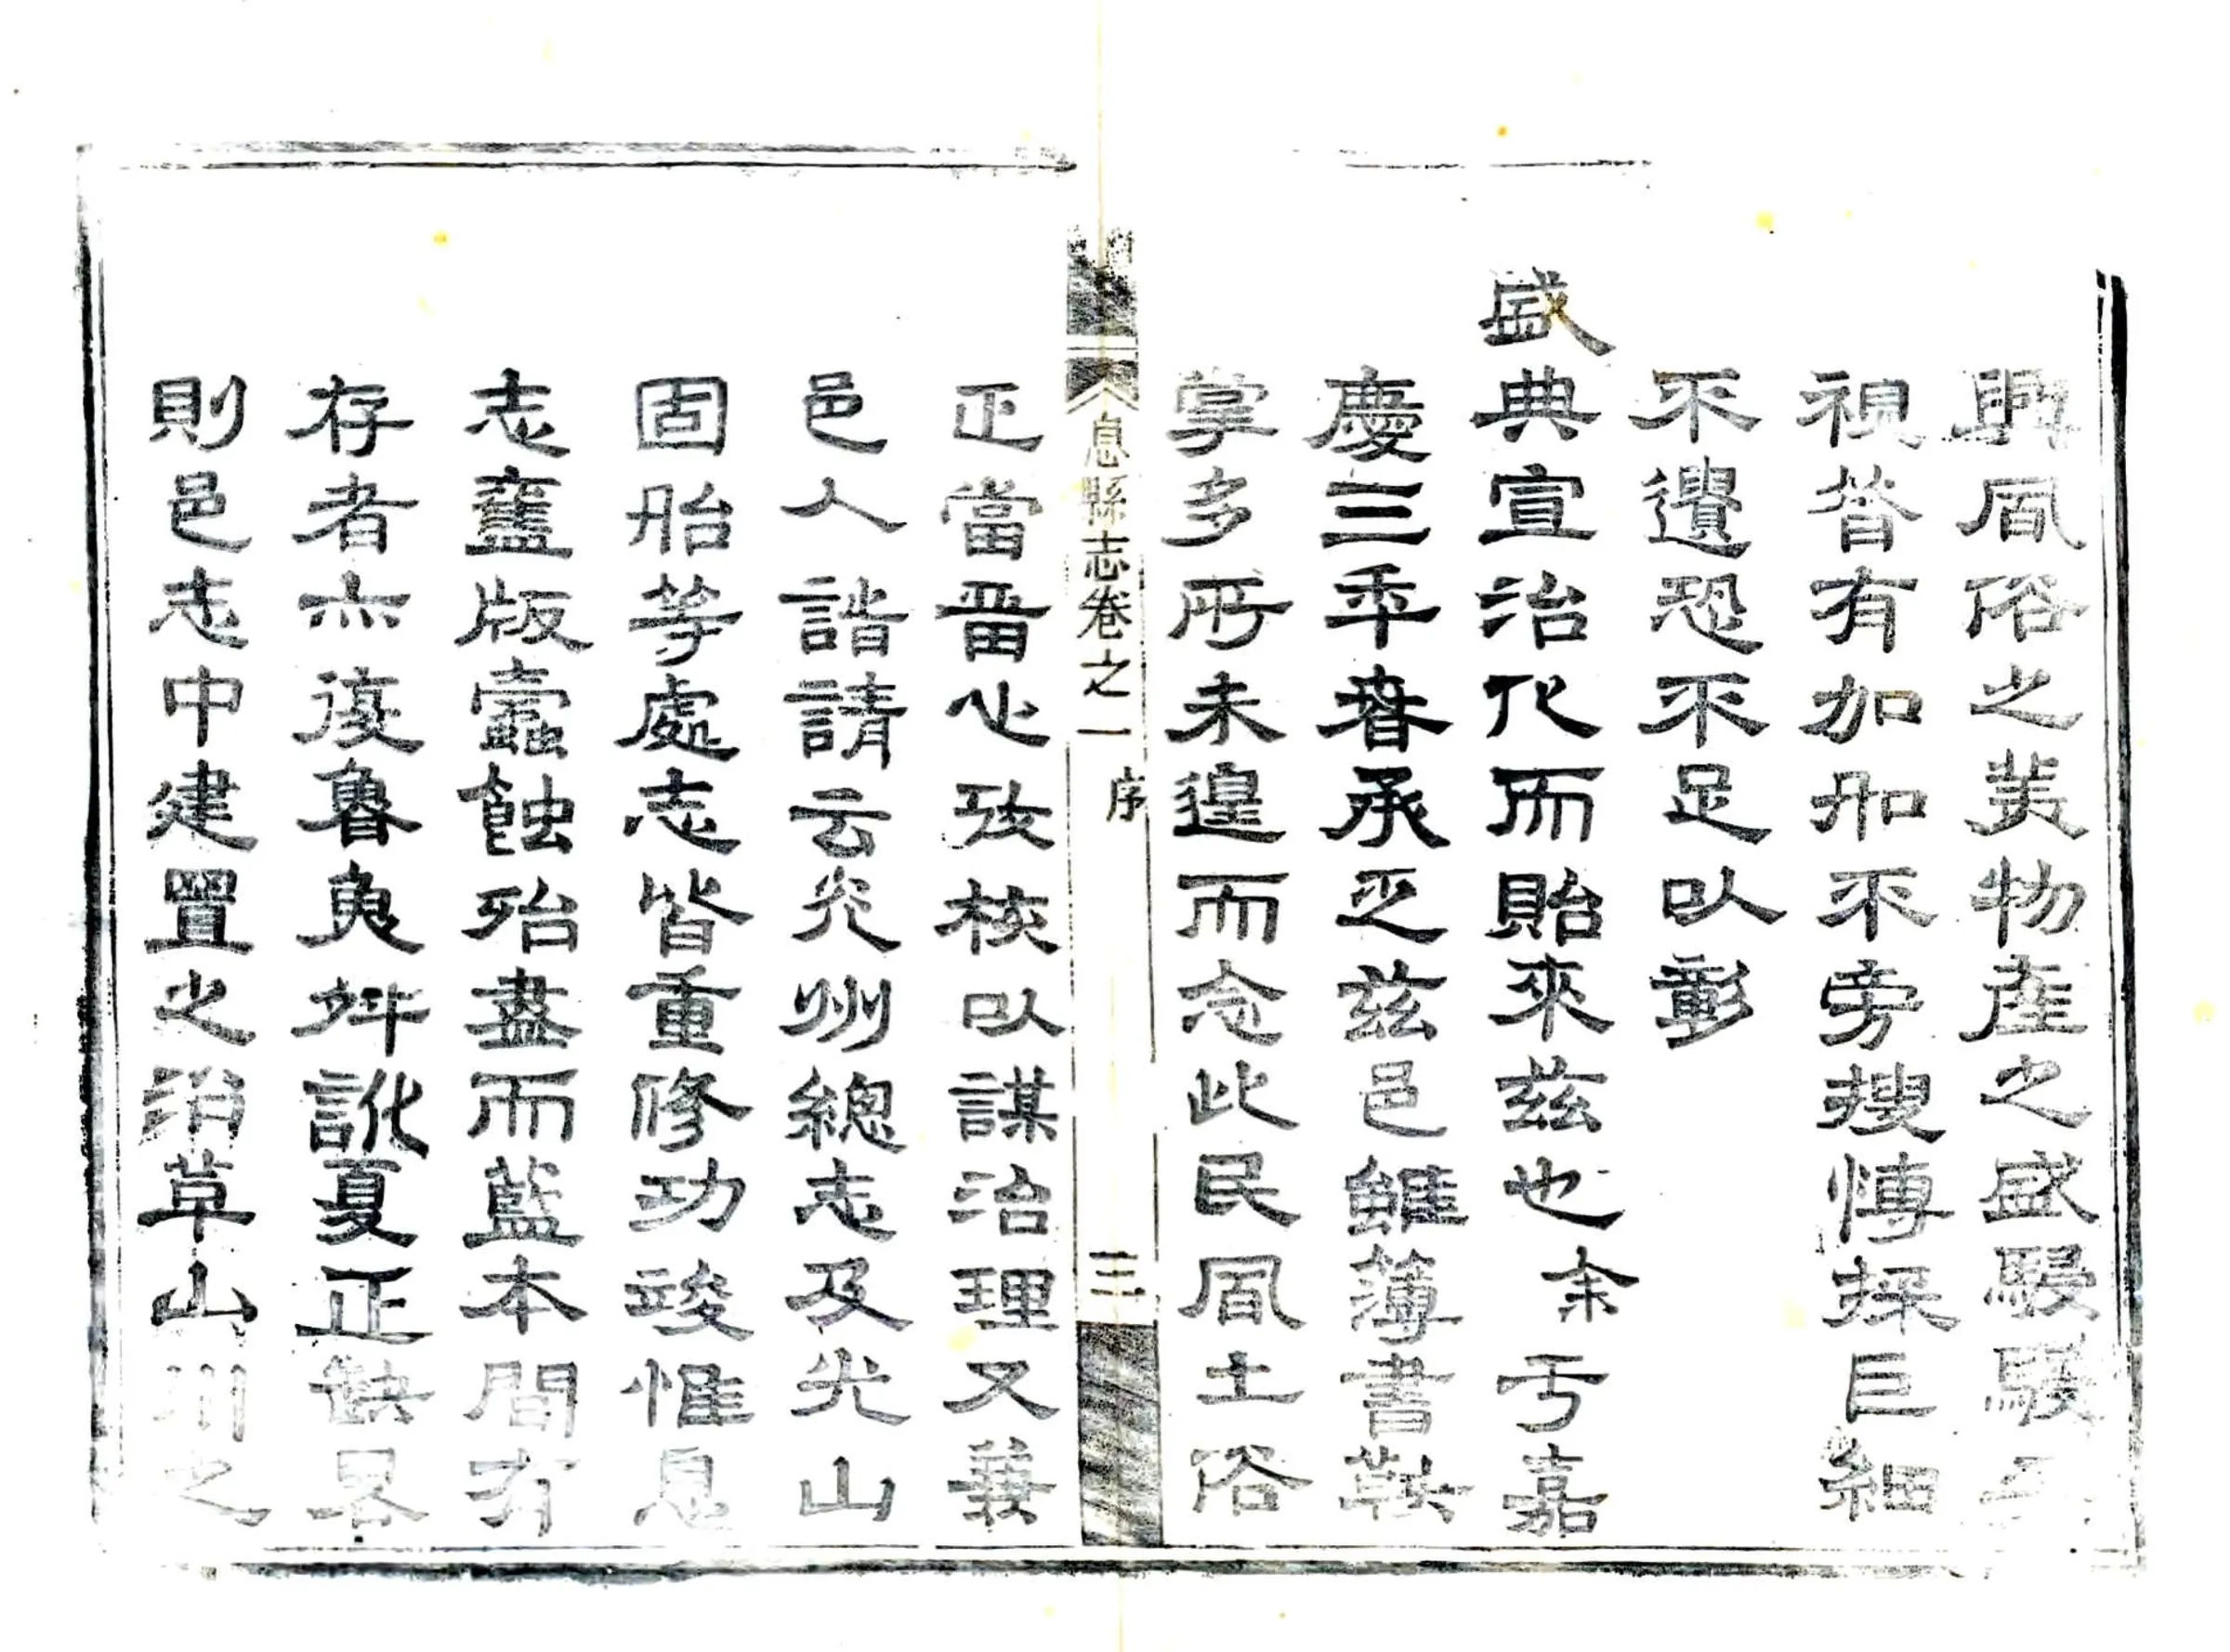 興風俗之美物產之盛駸駸乎
視昔有加如不旁搜愽採巨細
不遺恐不足以彰
盛典宣治化而貽來茲也余于嘉
慶三年春承乏茲邑雖薄書鞅
掌多所未遑而念此民風土俗
息縣志卷之一 序 三
正當畱心攷核以謀治理又兼
邑人諧請云光州總志及光山
固始等處志皆重修功竣惟息
志舊版蠹蝕殆盡而藍本間有
存者亦復魯魚舛訛夏正缺畧
則邑志中建置之沿革山川之